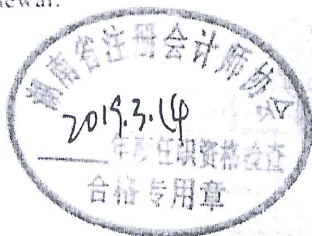 newal.
湖南省注册会计师协会
2019.3.14
年度任职资格检查
合格专用章